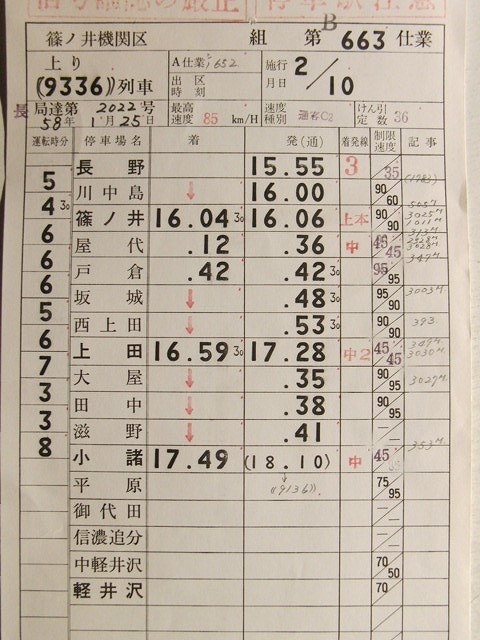 B
篠ノ井機関区 組 第 663 仕業
上り ((9336)) 列車 A仕業; 652 出区時刻 施行月日 2/10
長 局達第 2022 号 58年 1月 25日 最高速度 85 km/H 速度種別 通客C2 けん引定数 36
運転時分 停車場名 着 発(通) 着発線 制限速度 記事
長野 15.55 3 35
5 川中島 ↓ 16.00 90 60
4 30 篠ノ井 16.04 30 16.06 上本 90 90 3025M 1011M
6 屋代 .12 .36 中 45 45 3028M
6 戸倉 .42 .42 30 95 95 347M
6 坂城 ↓ .48 30 90 90 3003M
5 西上田 ↓ .53 30 90 90 393
6 上田 16.59 30 17.28 中2 45 45 349M 3030M
7 大屋 ↓ .35 90 95 3027M
3 田中 ↓ .38 90 95
3 滋野 ↓ .41 — —
8 小諸 17.49 (18.10) 中 45 353M
平原 ↓ ((9136)) 75 95
御代田 — —
信濃追分 — —
中軽井沢 70 50
軽井沢 70